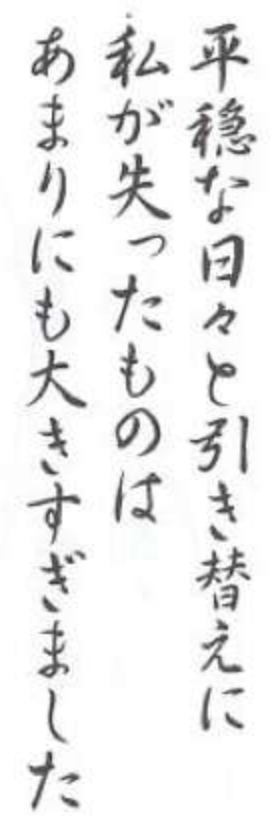 平穏な日々と引き替えに
私が失ったものは
あまりにも大きすぎました